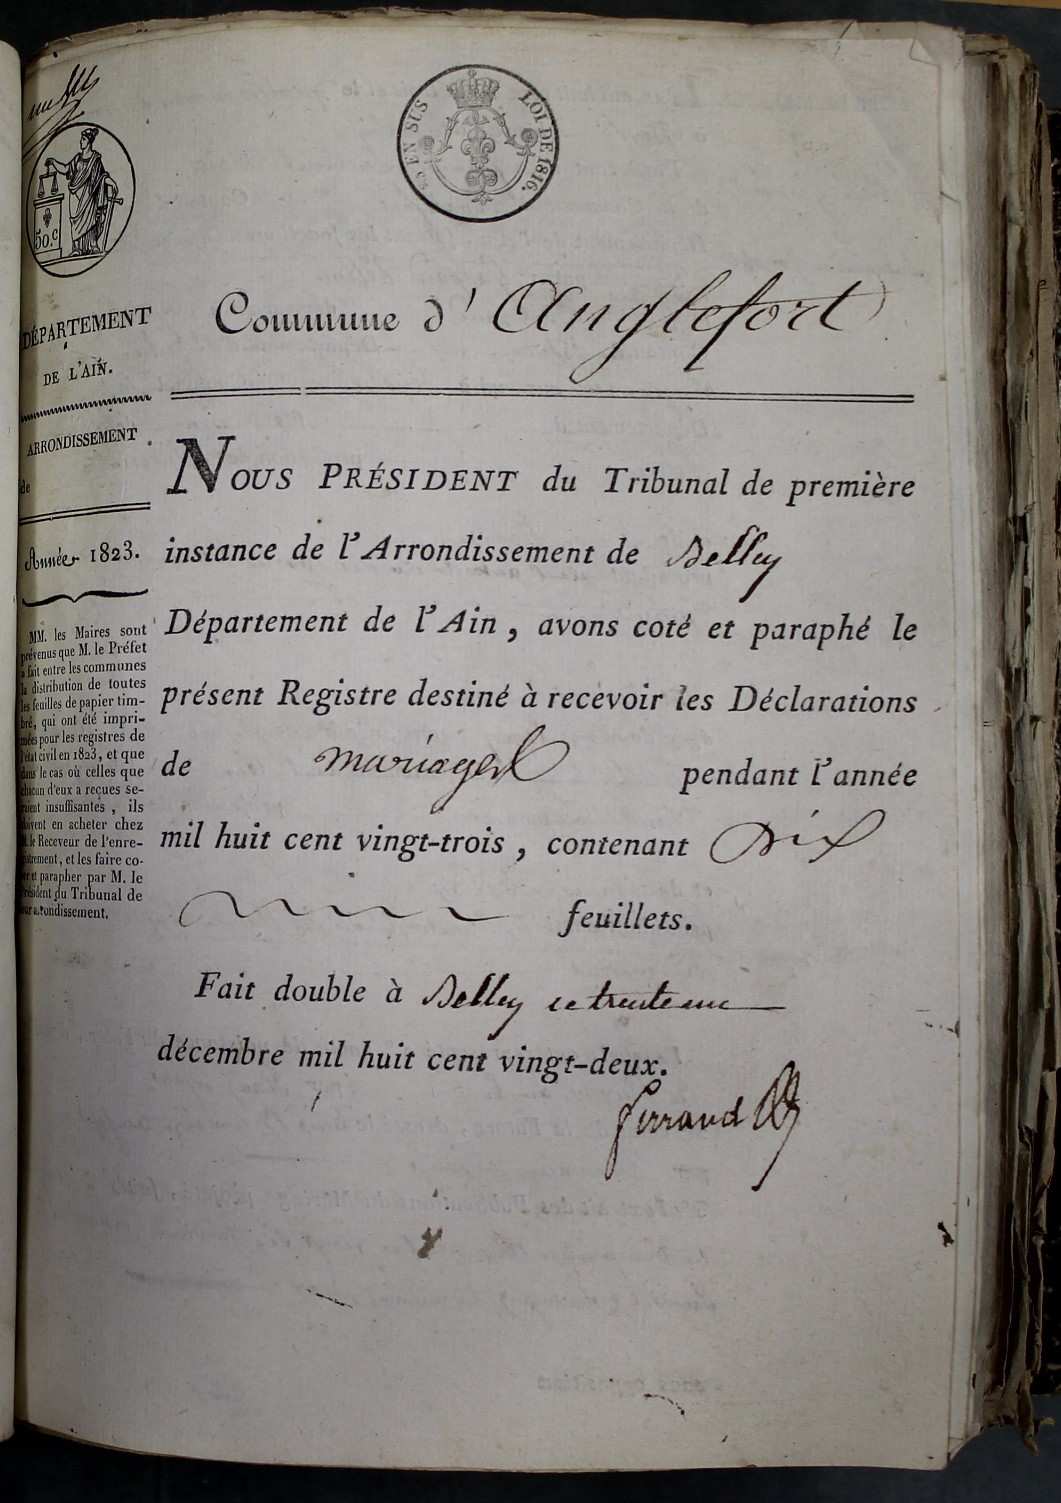 EN SUS
LOI DE 1816.
50.c
DÉPARTEMENT
DE L'AIN.
ARRONDISSEMENT
de
Année 1823.
MM. les Maires sont
prévenus que M. le Préfet
a fait entre les communes
la distribution de toutes
les feuilles de papier tim-
bré, qui ont été impri-
mées pour les registres de
l'état civil en 1823, et que
dans le cas où celles que
chacun d'eux a reçues se-
raient insuffisantes, ils
doivent en acheter chez
M. le Receveur de l'enre-
gistrement, et les faire co-
ter et parapher par M. le
Président du Tribunal de
leur arrondissement.
Commune d' Anglefort
NOUS PRÉSIDENT du Tribunal de première
instance de l'Arrondissement de Belley
Département de l'Ain, avons coté et paraphé le
présent Registre destiné à recevoir les Déclarations
de mariages pendant l'année
mil huit cent vingt-trois, contenant Dix
feuillets.
Fait double à Belley ce trente un
décembre mil huit cent vingt-deux.
Ferrand